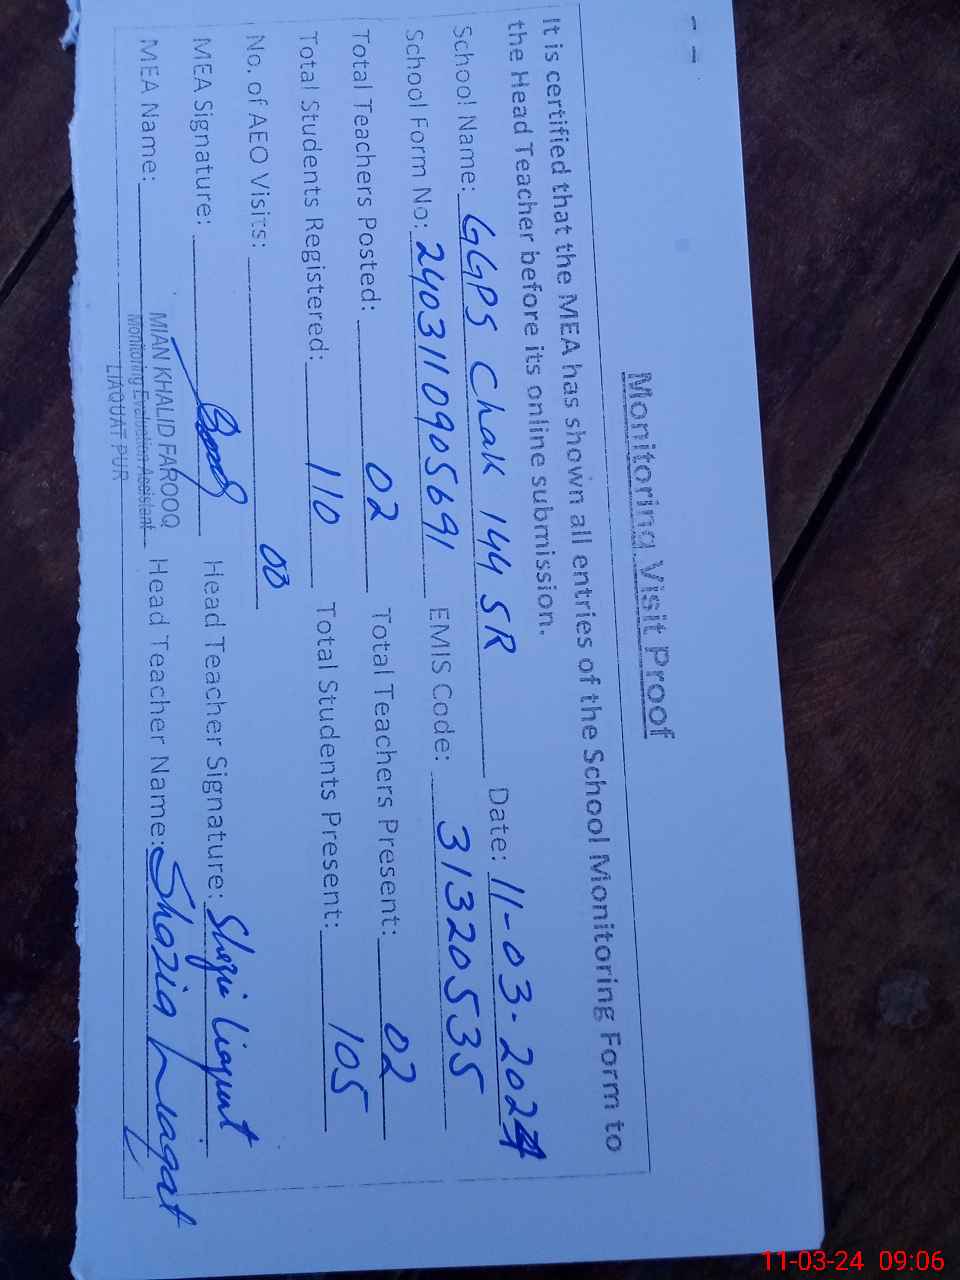 Monitoring Visit Proof
It is certified that the MEA has shown all entries of the School Monitoring Form to
the Head Teacher before its online submission.
School Name: GGPS Chak 144 SR Date: 11-03-2024
School Form No: 2403110905691 EMIS Code: 31320535
Total Teachers Posted: 02 Total Teachers Present: 02
Total Students Registered: 110 Total Students Present: 105
No. of AEO Visits: 00
MEA Signature: Head Teacher Signature: Shazia Liaqat
MEA Name: MIAN KHALID FAROOQ Head Teacher Name: Shazia Liaqat
Monitoring Evaluation Assistant
LIAQUAT PUR
11-03-24 09:06